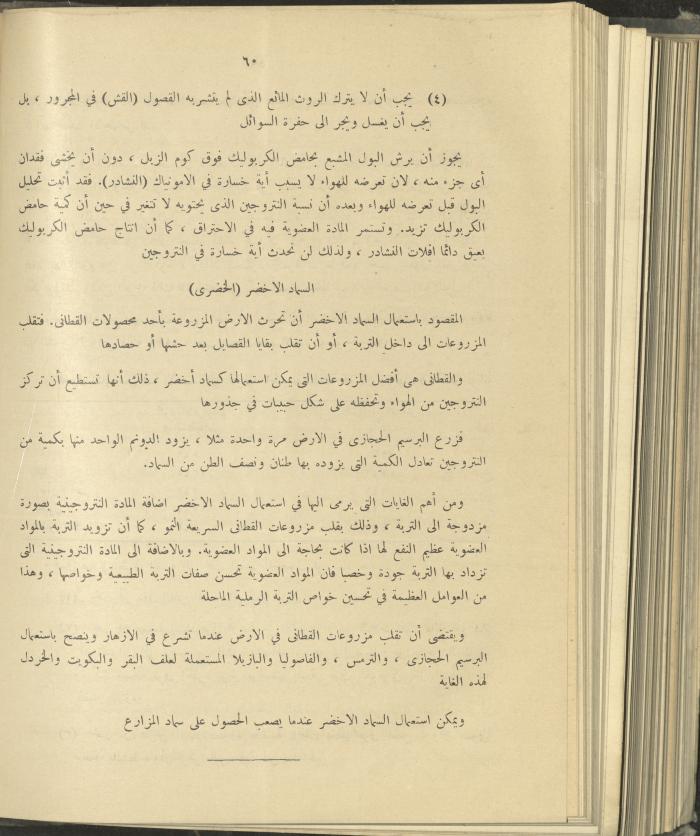 ٦٠
(٤) يجب أن لا يترك الروث المائع الذى لم يتشربه القصول (القش) في المجرور ، بل
يجب أن يغسل ويجر الى حفرة السوائل
يجوز أن يرش البول المشبع بحامض الكربوليك فوق كوم الزبل ، دون أن يخشى فقدان
أى جزء منه ، لان تعرضه للهواء لا يسبب أية خسارة في الامونياك (النشادر). فقد أثبت تحليل
البول قبل تعرضه للهواء وبعده أن نسبة النتروجين الذى يحتويه لا تتغير في حين أن كمية حامض
الكربوليك تزيد. وتستمر المادة العضوية فيه في الاحتراق ، كما أن انتاج حامض الكربوليك
يعيق دائما افلات النشادر ، ولذلك لن تحدث أية خسارة في النتروجين
السماد الاخضر (الخضرى)
المقصود باستعمال السماد الاخضر أن تحرث الارض المزروعة بأحد محصولات القطانى. فتقلب
المزروعات الى داخل التربة ، أو أن تقلب بقايا القصايل بعد حشها أو حصادها
والقطانى هى أفضل المزروعات التى يمكن استعمالها كسماد أخضر ، ذلك أنها تستطيع أن تركز
النتروجين من الهواء وتحفظه على شكل حبيبات في جذورها
فزرع البرسيم الحجازى في الارض مرة واحدة مثلا ، يزود الدونم الواحد منها بكمية من
النتروجين تعادل الكمية التى يزوده بها طنان ونصف الطن من السماد.
ومن أهم الغايات التى يرمى اليها في استعمال السماد الاخضر اضافة المادة النتروجينية بصورة
مزدوجة الى التربة ، وذلك بقلب مزروعات القطانى السريعة النمو ، كما أن تزويد التربة بالمواد
العضوية عظيم النفع لها اذا كانت بحاجة الى المواد العضوية. وبالاضافة الى المادة النتروجينية التى
تزداد بها التربة جودة وخصبا فان المواد العضوية تحسن صفات التربة الطبيعية وخواصها ، وهذا
من العوامل العظيمة في تحسين خواص التربة الرملية الماحلة
ويقتضى أن تقلب مزروعات القطانى في الارض عندما تشرع في الازهار وينصح باستعمال
البرسيم الحجازى ، والترمس ، والفاصوليا والبازيلا المستعملة لعلف البقر والبكويت والخردل
لهذه الغاية
ويمكن استعمال السماد الاخضر عندما يصعب الحصول على سماد المزارع